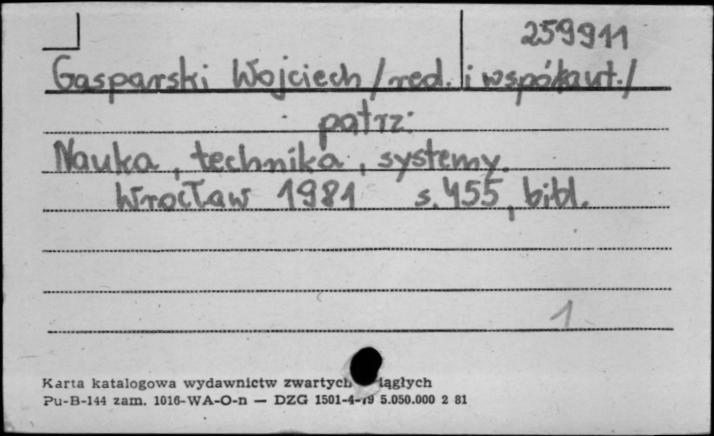 259911
Gasparski Wojciech /red. i współaut./
patrz:
Nauka, technika, systemy.
Wrocław 1981 s. 455, bibl.
1
Karta katalogowa wydawnictw zwartych
Pu-B-144 zam. 1016-WA-O-n — DZG 5.050.000 2 81